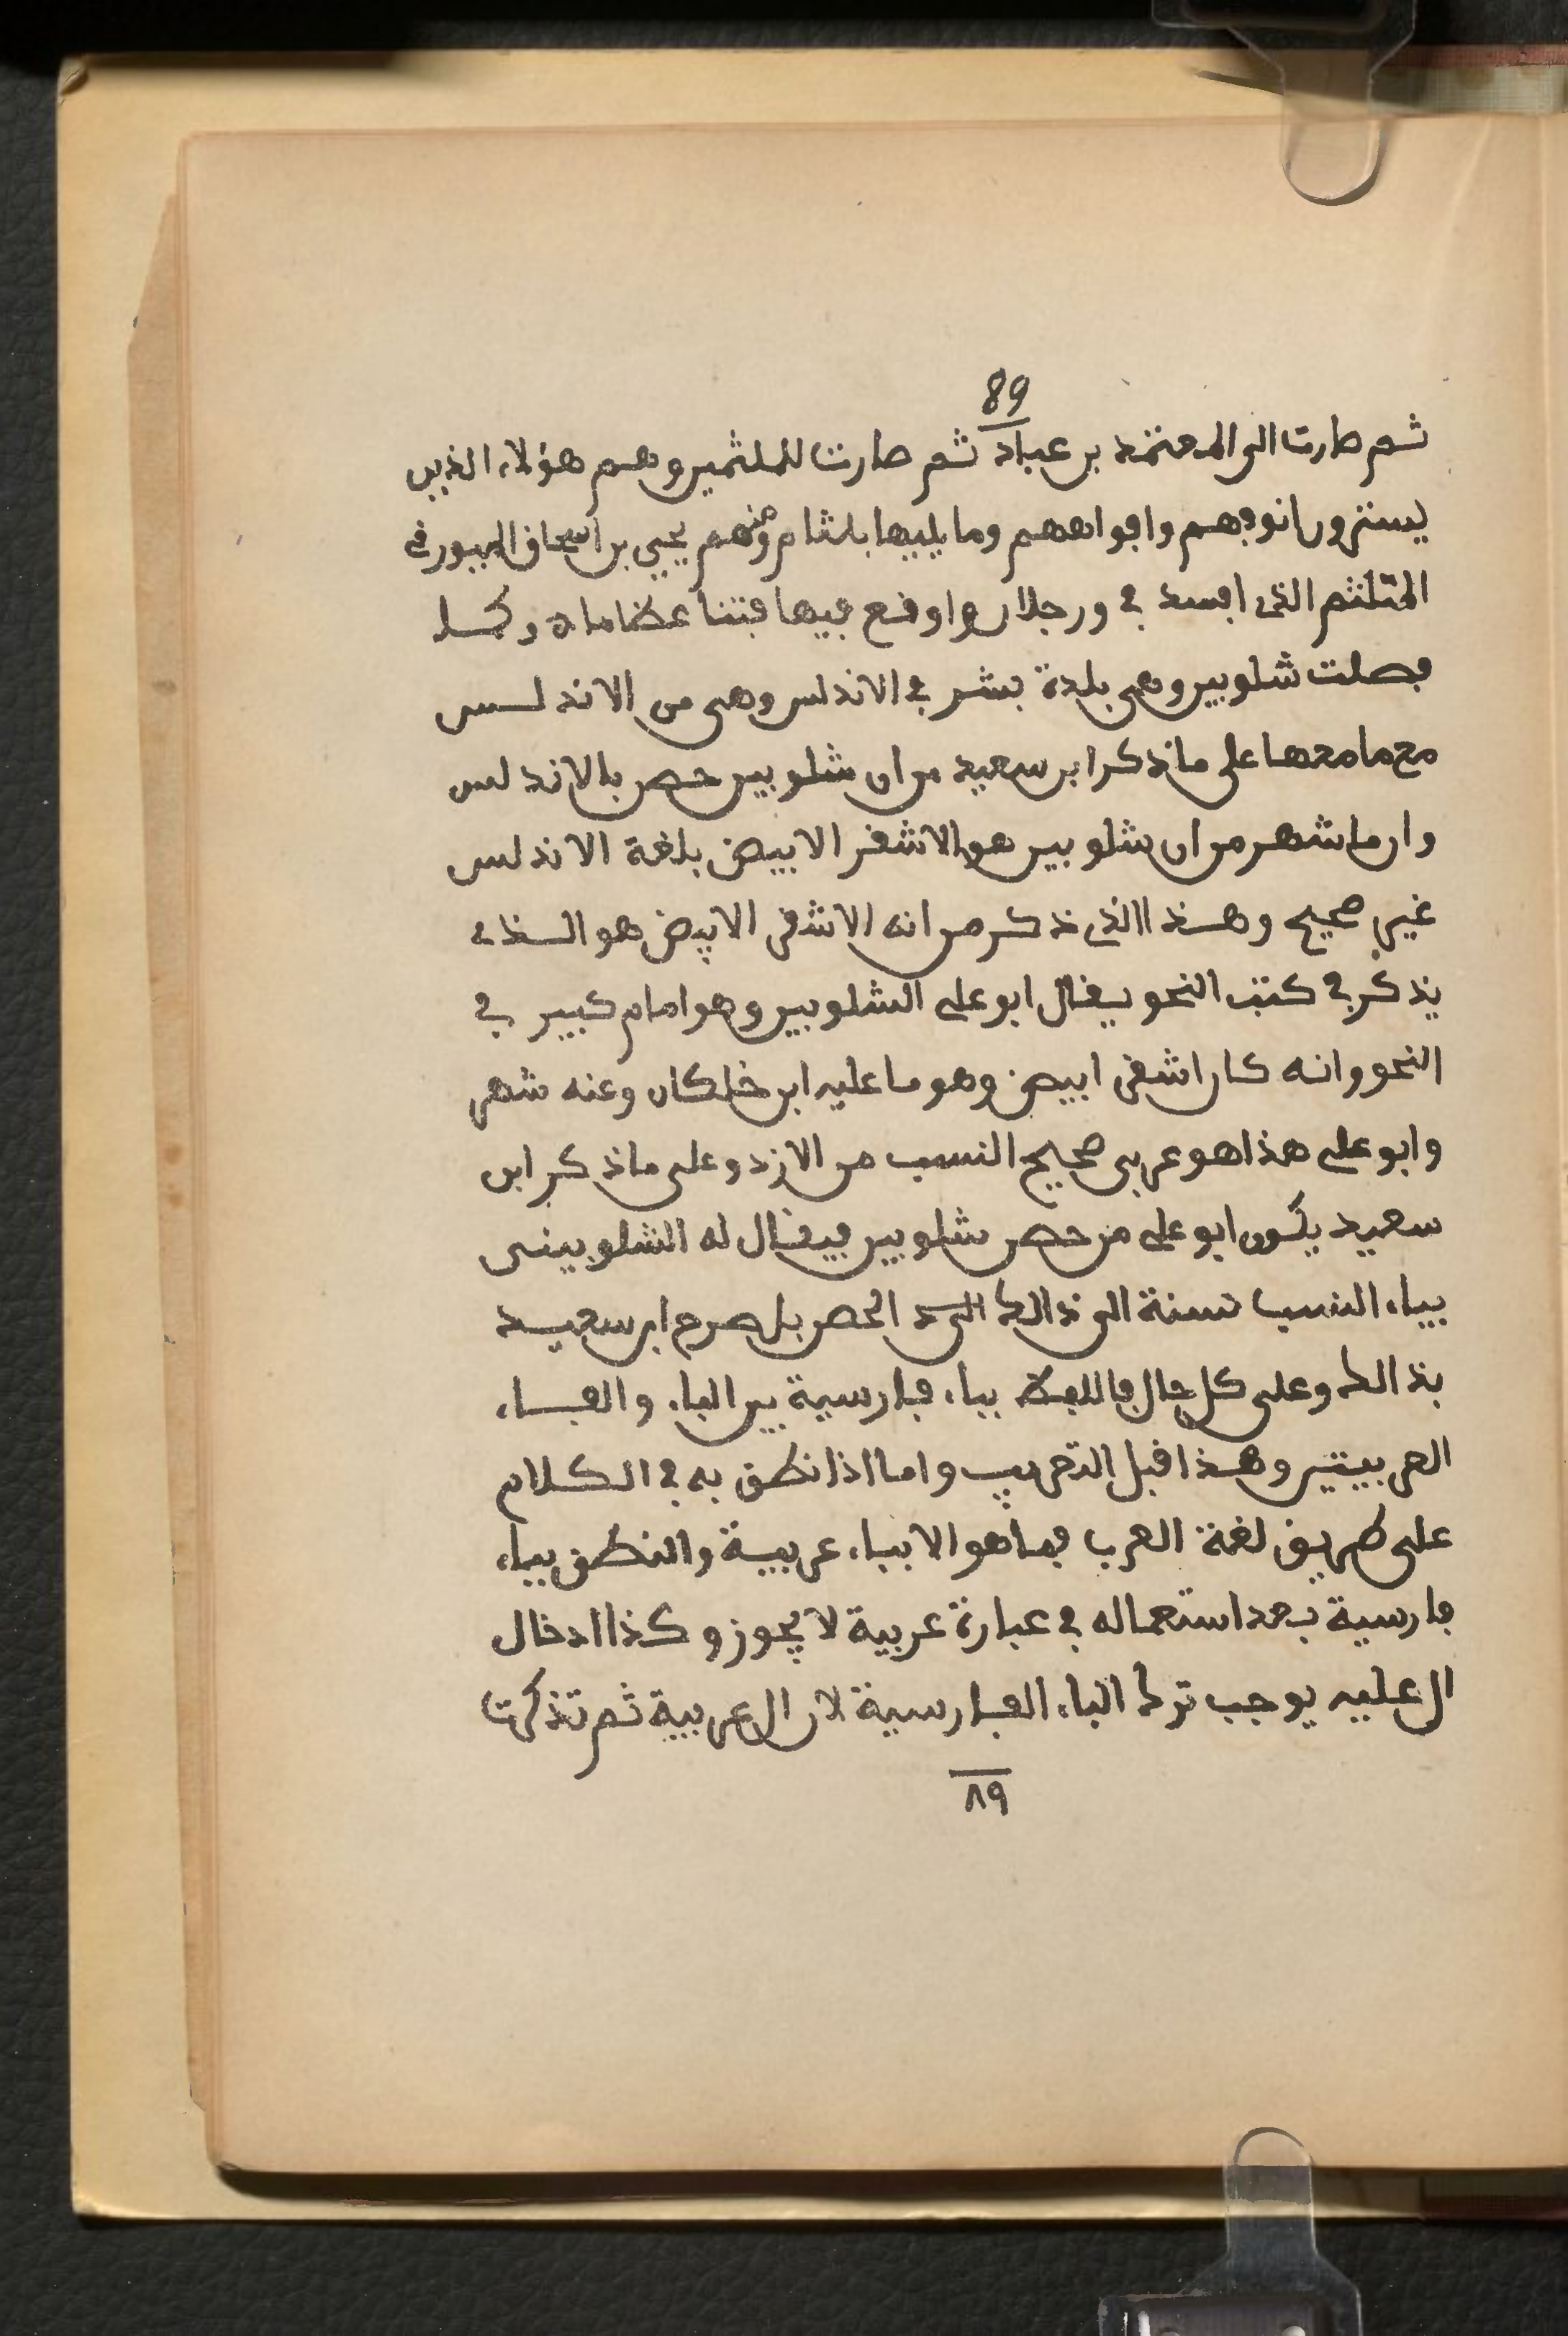 89
ثم صارت الى المعتمد بن عباد ثم صارت للملثمين وهم هؤلاء الذين
يسترون انوفهم وافواههم وما يليها بلثام ومنهم يحيى بن اسحاق الميورقي
المتلثم الذي افسد في ورجلان واوقع فيها فتنا عظاما ه وكما
فصلت شلوبين وهي بلدة بشرق الاندلس وهي من الاندلس
مع مامعها على ما ذكر ابن سعيد من ان شلوبين حصن بالاندلس
وان ما شهر من ان شلوبين هو الاشقر الابيض بلغة الاندلس
غير صحيح وهذا الذي ذكر من انه الاشقر الابيض هو الذي
يذكر في كتب النحو يقال ابو علي الشلوبين وهو امام كبير في
النحو وانه كان اشقر ابيض وهو ما عليه ابن خلكان وعنه شهر
وابو علي هذا هو عربي صحيح النسب من الازد وعلى ما ذكر ابن
سعيد يكون ابو علي من حصن شلوبين فيقال له الشلوبيني
بياء النسب نسبة الى ذالك الحصن بل صرح ابن سعيد
بذالك وعلى كل حال فاللفظ بباء فارسية بين الباء والفاء
العربيتين وهذا قبل التعريب واما اذا نطق به في الكلام
على طريق لغة العرب فما هو الا بباء عربية والنطق بباء
فارسية بعد استعماله في عبارة عربية لا يجوز وكذا ادخال
ال عليه يوجب ترك الباء الفارسية لان ال عربية ثم تذكرت
٨٩